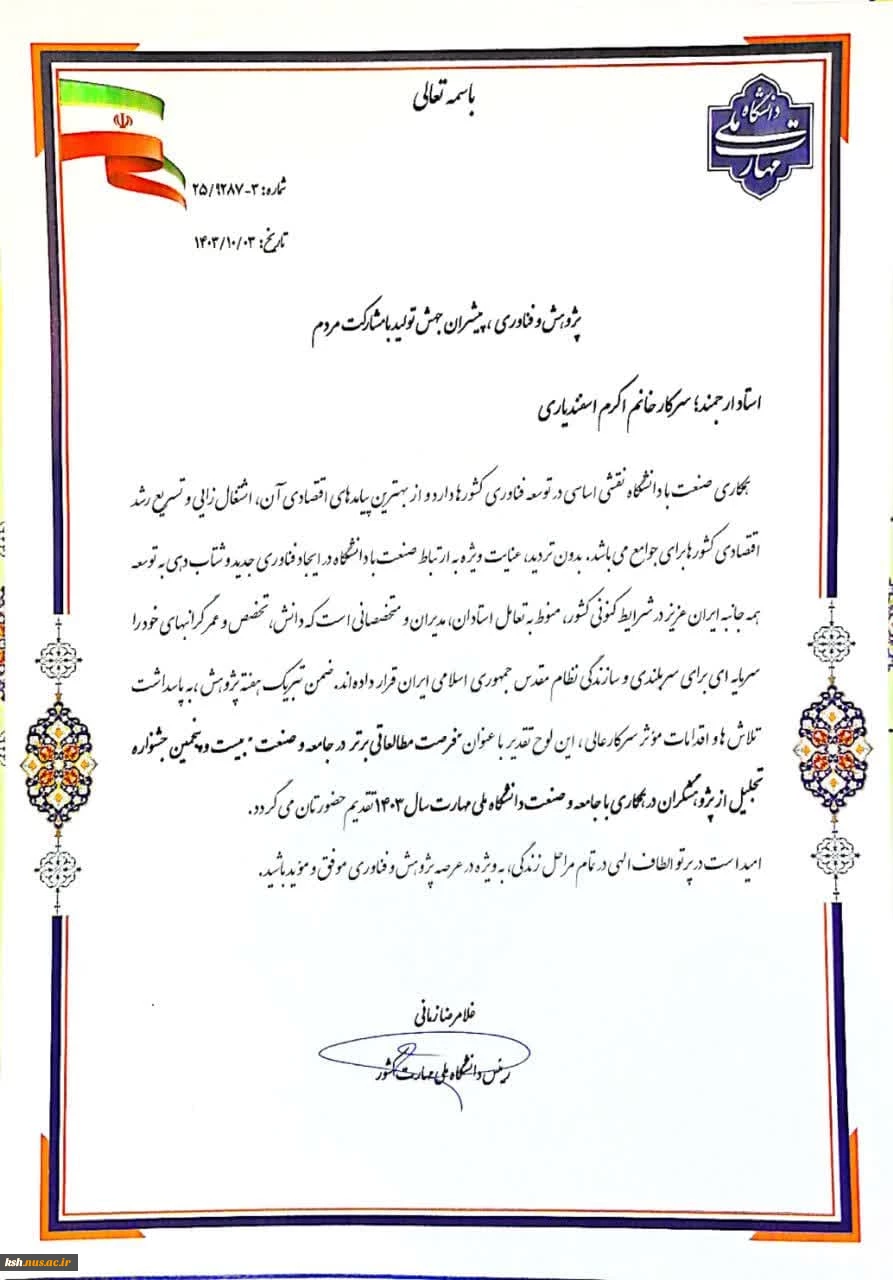 باسمه تعالی
دانشگاه
ملی
مهارت
شماره: ۲۵/۹۲۸۷-۳
تاریخ: ۱۴۰۳/۱۰/۰۳
پژوهش و فناوری ، پیشران جهش تولید با مشارکت مردم
استاد ارجمند؛ سرکار خانم اکرم اسفندیاری
همکاری صنعت با دانشگاه نقشی اساسی در توسعه فناوری کشورها دارد و از بهترین پیامدهای اقتصادی آن، اشتغال زایی و تسریع رشد
اقتصادی کشورها برای جوامع می باشد. بدون تردید، عنایت ویژه به ارتباط صنعت با دانشگاه در ایجاد فناوری جدید و شتاب دهی به توسعه
همه جانبه ایران عزیز در شرایط کنونی کشور، منوط به تعامل استادان، مدیران و متخصصانی است که دانش، تخصص و عمر گرانبهای خود را
سرمایه ای برای سربلندی و سازندگی نظام مقدس جمهوری اسلامی ایران قرار داده‌اند. ضمن تبریک هفته پژوهش ،به پاسداشت
تلاش ها و اقدامات مؤثر سرکارعالی ، این لوح تقدیر با عنوان "فرصت مطالعاتی برتر در جامعه و صنعت" بیست و پنجمین جشنواره
تجلیل از پژوهشگران در همکاری با جامعه و صنعت دانشگاه ملی مهارت سال ۱۴۰۳ تقدیم حضورتان می گردد.
امید است در پرتو الطاف الهی در تمام مراحل زندگی، به ویژه در عرصه پژوهش و فناوری موفق و مؤید باشید.
غلامرضا زمانی
رییس دانشگاه ملی مهارت کشور
ksh.nus.ac.ir